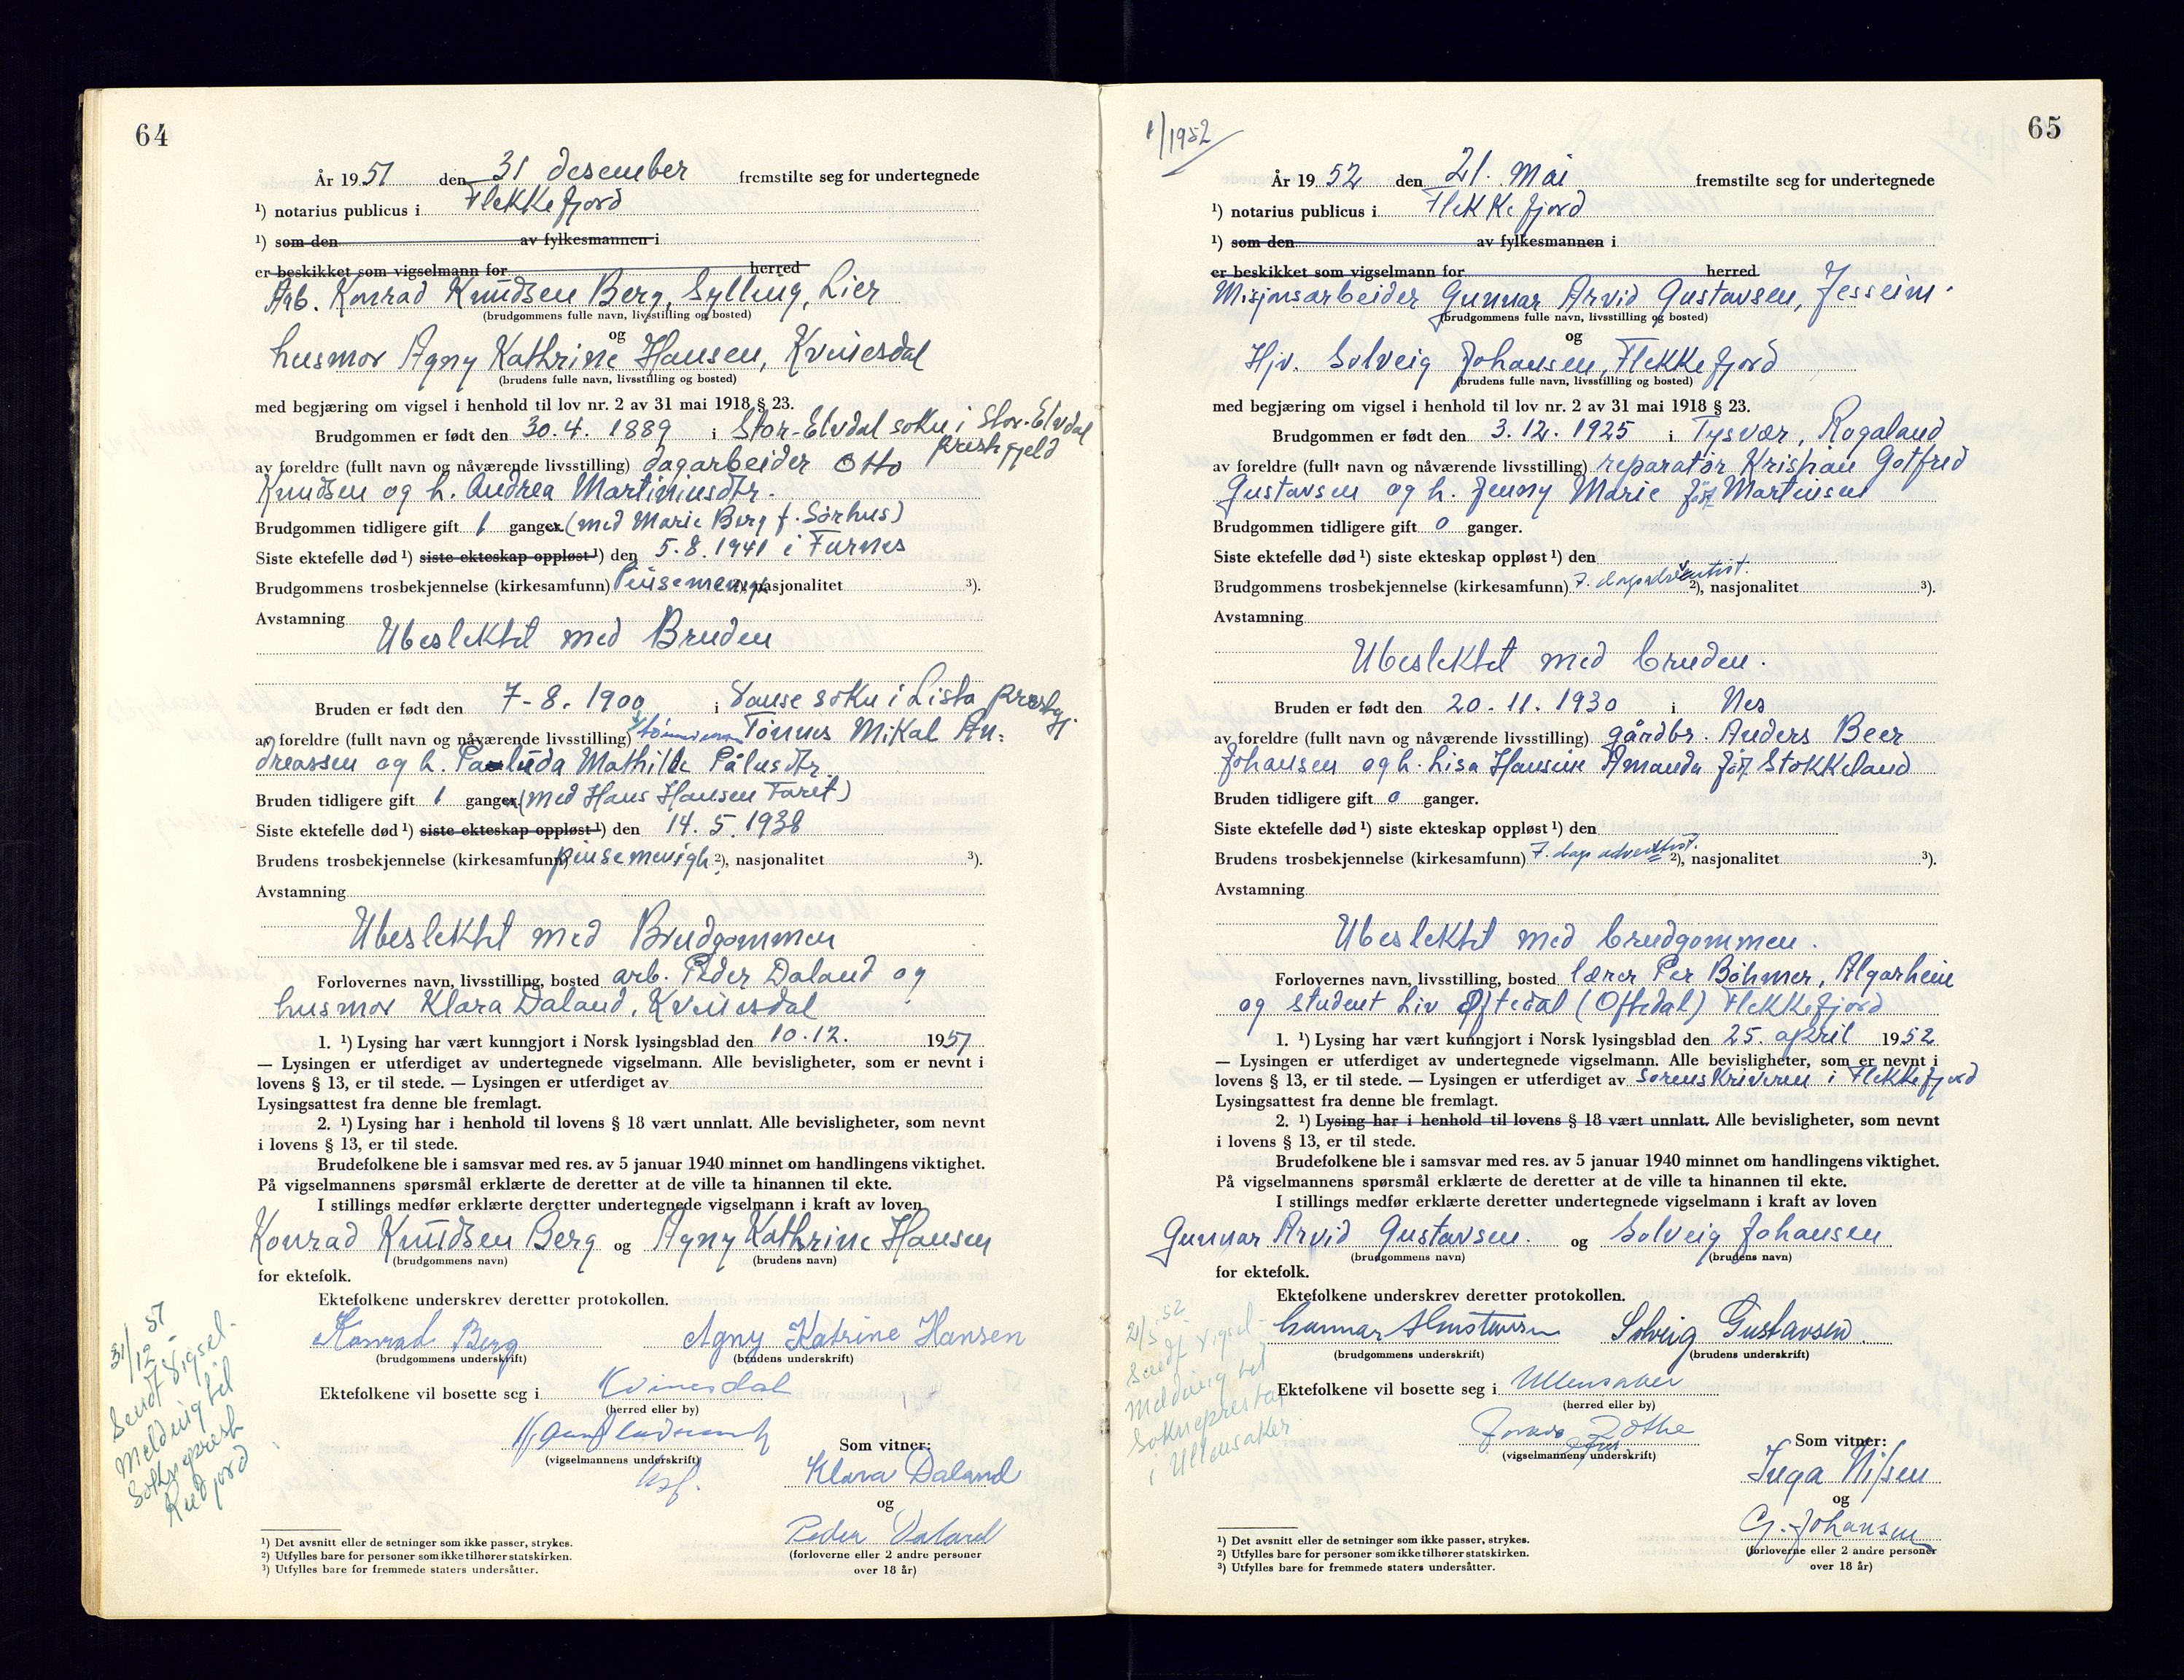 64
År 1951 den 31 desember fremstilte seg for undertegnede
¹) notarius publicus i Flekkefjord
¹) som den av fylkesmannen i
er beskikket som vigselmann for herred
Arb. Konrad Knudsen Berg, Sylling, Lier
(brudgommens fulle navn, livsstilling og bosted)
og
husmor Agny Kathrine Hansen, Kvinesdal
(brudens fulle navn, livsstilling og bosted)
med begjæring om vigsel i henhold til lov nr. 2 av 31 mai 1918 § 23.
Brudgommen er født den 30.4. 1889 i Stor-Elvdal sokn i Stor-Elvdal
prestegjeld
av foreldre (fullt navn og nåværende livsstilling) dagarbeider Otto
Knudsen og h. Andrea Martiniusdtr.
Brudgommen tidligere gift 1 ganger (med Marie Berg f. Sørhus)
Siste ektefelle død ¹) siste ekteskap oppløst ¹) den 5.8.1941 i Furnes
Brudgommens trosbekjennelse (kirkesamfunn) Pinsemenigh. nasjonalitet ³).
Avstamning
Ubeslektet med Bruden
Bruden er født den 7-8. 1900 i Vanse sokn i Lista prestgj.
av foreldre (fullt navn og nåværende livsstilling) Tønnes Mikal An-
dreassen og h. Paulūda Mathilde Pålusdtr.
Bruden tidligere gift 1 ganger (med Hans Hansen Faret)
Siste ektefelle død ¹) siste ekteskap oppløst ¹) den 14.5.1938
Brudens trosbekjennelse (kirkesamfunn) pinsemenigh. ²), nasjonalitet ³).
Avstamning
Ubeslektet med Brudgommen
Forlovernes navn, livsstilling, bosted arb. Peder Daland og
husmor Klara Daland, Kvinesdal
1. ¹) Lysing har vært kunngjort i Norsk lysingsblad den 10.12. 1951
— Lysingen er utferdiget av undertegnede vigselmann. Alle bevisligheter, som er nevnt i
lovens § 13, er til stede. — Lysingen er utferdiget av
Lysingsattest fra denne ble fremlagt.
2. ¹) Lysing har i henhold til lovens § 18 vært unnlatt. Alle bevisligheter, som nevnt
i lovens § 13, er til stede.
Brudefolkene ble i samsvar med res. av 5 januar 1940 minnet om handlingens viktighet.
På vigselmannens spørsmål erklærte de deretter at de ville ta hinannen til ekte.
I stillings medfør erklærte deretter undertegnede vigselmann i kraft av loven
Konrad Knudsen Berg og Agny Kathrine Hansen
(brudgommens navn) (brudens navn)
for ektefolk.
Ektefolkene underskrev deretter protokollen.
Konrad Berg Agny Katrine Hansen
(brudgommens underskrift) (brudens underskrift)
Ektefolkene vil bosette seg i Kvinesdal
(herred eller by)
(vigselmannens underskrift)
Som vitner:
Klara Daland
og
Peder Daland
(forloverne eller 2 andre personer
over 18 år)
31/12 51
Sendt vigsel-
melding til
Sokneprest
¹) Det avsnitt eller de setninger som ikke passer, strykes.
²) Utfylles bare for personer som ikke tilhører statskirken.
³) Utfylles bare for fremmede staters undersåtter.
1/1952
65
År 1952 den 21. Mai fremstilte seg for undertegnede
¹) notarius publicus i Flekkefjord
¹) som den av fylkesmannen i
er beskikket som vigselmann for herred
Misjonsarbeider Gunnar Arvid Gustavsen, Jesseim.
(brudgommens fulle navn, livsstilling og bosted)
og
Hjv. Solveig Johansen, Flekkefjord
(brudens fulle navn, livsstilling og bosted)
med begjæring om vigsel i henhold til lov nr. 2 av 31 mai 1918 § 23.
Brudgommen er født den 3.12. 1925 i Tysvær, Rogaland
av foreldre (fullt navn og nåværende livsstilling) reparatør Kristian Gotfred
Gustavsen og h. Jenny Marie født Martinsen
Brudgommen tidligere gift 0 ganger.
Siste ektefelle død ¹) siste ekteskap oppløst ¹) den
Brudgommens trosbekjennelse (kirkesamfunn) 7. dags adventist. ²), nasjonalitet ³).
Avstamning
Ubeslektet med bruden.
Bruden er født den 20.11.1930 i Nes
av foreldre (fullt navn og nåværende livsstilling) gårdbr. Anders Beer
Johansen og h. Lisa Hansine Amanda født Stokkeland
Bruden tidligere gift 0 ganger.
Siste ektefelle død ¹) siste ekteskap oppløst ¹) den
Brudens trosbekjennelse (kirkesamfunn) 7. dags adventist. ²), nasjonalitet ³).
Avstamning
Ubeslektet med brudgommen.
Forlovernes navn, livsstilling, bosted lærer Per Bøhmer, Algarheim
og student Liv Øftedal (Oftedal) Flekkefjord
1. ¹) Lysing har vært kunngjort i Norsk lysingsblad den 25. april 1952
— Lysingen er utferdiget av undertegnede vigselmann. Alle bevisligheter, som er nevnt i
lovens § 13, er til stede. — Lysingen er utferdiget av Sorenskriveren i Flekkefjord
Lysingsattest fra denne ble fremlagt.
2. ¹) Lysing har i henhold til lovens § 18 vært unnlatt. Alle bevisligheter, som nevnt
i lovens § 13, er til stede.
Brudefolkene ble i samsvar med res. av 5 januar 1940 minnet om handlingens viktighet.
På vigselmannens spørsmål erklærte de deretter at de ville ta hinannen til ekte.
I stillings medfør erklærte deretter undertegnede vigselmann i kraft av loven
Gunnar Arvid Gustavsen. og Solveig Johansen
(brudgommens navn) (brudens navn)
for ektefolk.
Ektefolkene underskrev deretter protokollen.
Gunnar Gustavsen Solveig Gustavsen.
(brudgommens underskrift) (brudens underskrift)
Ektefolkene vil bosette seg i Ullensaker
(herred eller by)
(vigselmannens underskrift)
Som vitner:
Inga Nilsen
og
G. Johansen
(forloverne eller 2 andre personer
over 18 år)
21/5 52
Sendt vigsel-
melding til
Sokneprestn
i Ullensaker.
¹) Det avsnitt eller de setninger som ikke passer, strykes.
²) Utfylles bare for personer som ikke tilhører statskirken.
³) Utfylles bare for fremmede staters undersåtter.